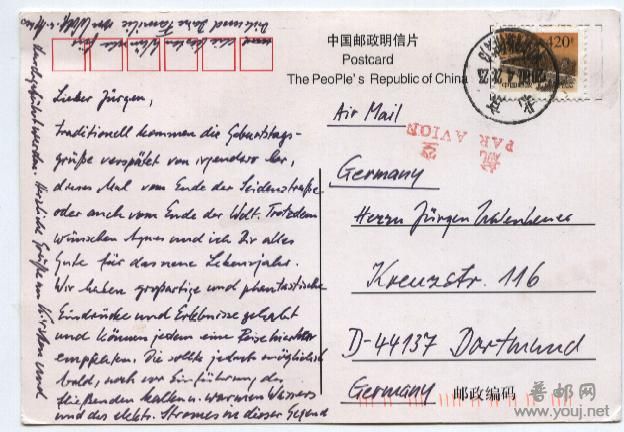 中国邮政明信片
Postcard
The PeoPle's Republic of China
420
航空
PAR AVION
Lieber Jürgen,
traditionell kommen die Geburtstags-
grüße verspätet von irgendwo her,
dieses Mal vom Ende der Seidenstraße
oder auch vom Ende der Welt. Trotzdem
wünschen Agnes und ich Dir alles
Gute für das neue Lebensjahr.
Wir haben großartige und phantastische
Eindrücke und Erlebnisse gehabt
und können jedem eine Reise hierher
empfehlen. Die sollte jedoch möglichst
bald, noch vor Einführung des
fließenden kalten u. warmen Wassers
und des elektr. Stromes in dieser Gegend
durchgeführt werden. Herzliche Grüße an Kirsten und
Air Mail
Germany
Herrn Jürgen
Kreuzstr. 116
D-44137 Dortmund
Germany
邮政编码
普邮网
www.youj.net